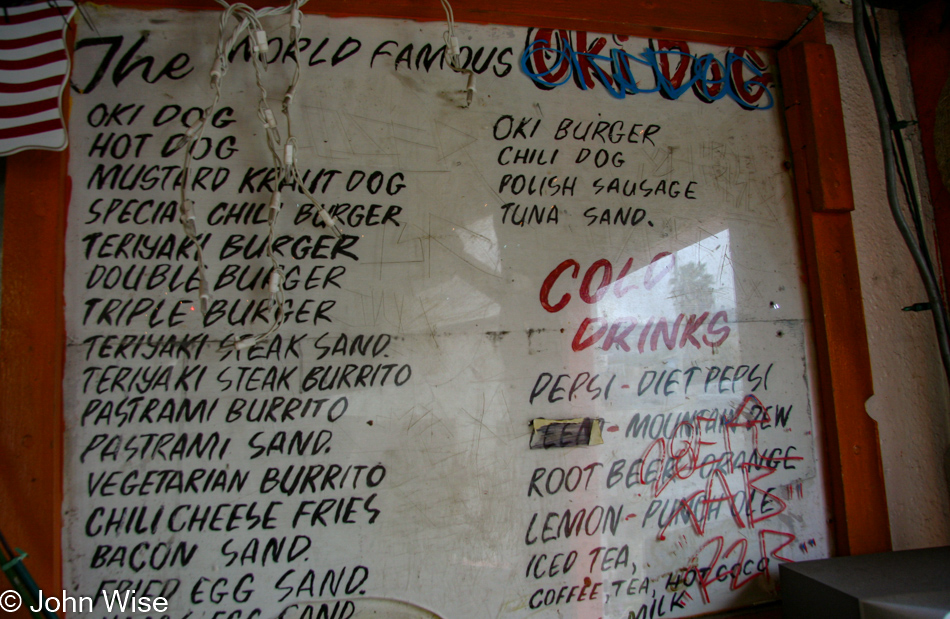 The WORLD FAMOUS OKi DOG
OKI DOG
HOT DOG
MUSTARD KRAUT DOG
SPECIAL CHILI BURGER
TERIYAKI BURGER
DOUBLE BURGER
TRIPLE BURGER
TERIYAKI STEAK SAND.
TERIYAKI STEAK BURRITO
PASTRAMI BURRITO
PASTRAMI SAND.
VEGETARIAN BURRITO
CHILI CHEESE FRIES
BACON SAND.
FRIED EGG SAND.
EGG SAND
OKI BURGER
CHILI DOG
POLISH SAUSAGE
TUNA SAND.
COLD
DRINKS
PEPSI - DIET PEPSI
- MOUNTAIN DEW
ROOT BEER - ORANGE
LEMON - PUNCH OLE
ICED TEA,
COFFEE, TEA, HOT COCO
MILK
© John Wise